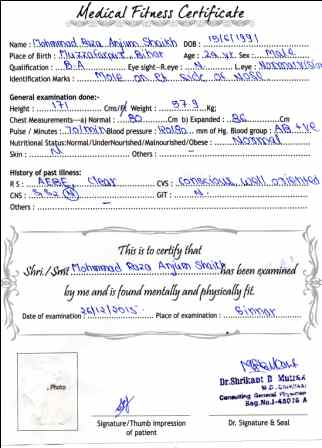 Medical Fitness Certificate
Name: Mohmmad Raza Anjum Shaikh DOB: 15/6/1991
Place of Birth: Muzzafarpur, Bihar Age: 24 yr. Sex: Male
Qualification: B.A. Eye sight -R.eye: N L.eye: N Normal vision
Identification Marks: Mole on Rt side of Nose
General examination done:-
Height: 171 Cms/Ft Weight: 57.9 Kg;
Chest Measurements---a) Normal: 80 Cm b) Expanded: 86 Cm
Pulse / Minutes: 70/min Blood pressure: mm of Hg. Blood group: AB +ve
Nutritional Status:Normal/UnderNourished/Malnourished/Obese: Normal
Skin: N Others: -
History of past Illness:
R S: AEBE, clear CVS: Conscious, well oriented
CNS: N GIT: N
Others: -
This is to certify that
Shri./Smt Mohmmad Raza Anjum Shaikh has been examined
by me and is found mentally and physically fit.
Date of examination: 26/12/2015 Place of examination: Sinnar
Photo
Dr.Shrikant B
Consulting General Physician
Reg.No.I-45076 A
Signature/Thumb Impression
of patient
Dr. Signature & Seal